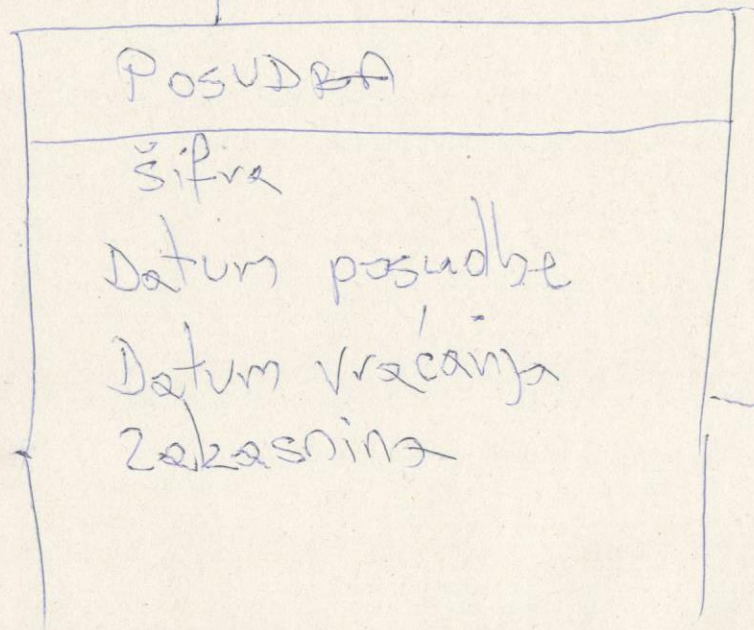 POSUDBA
šifra
Datum posudbe
Datum vraćanja
zakasnina